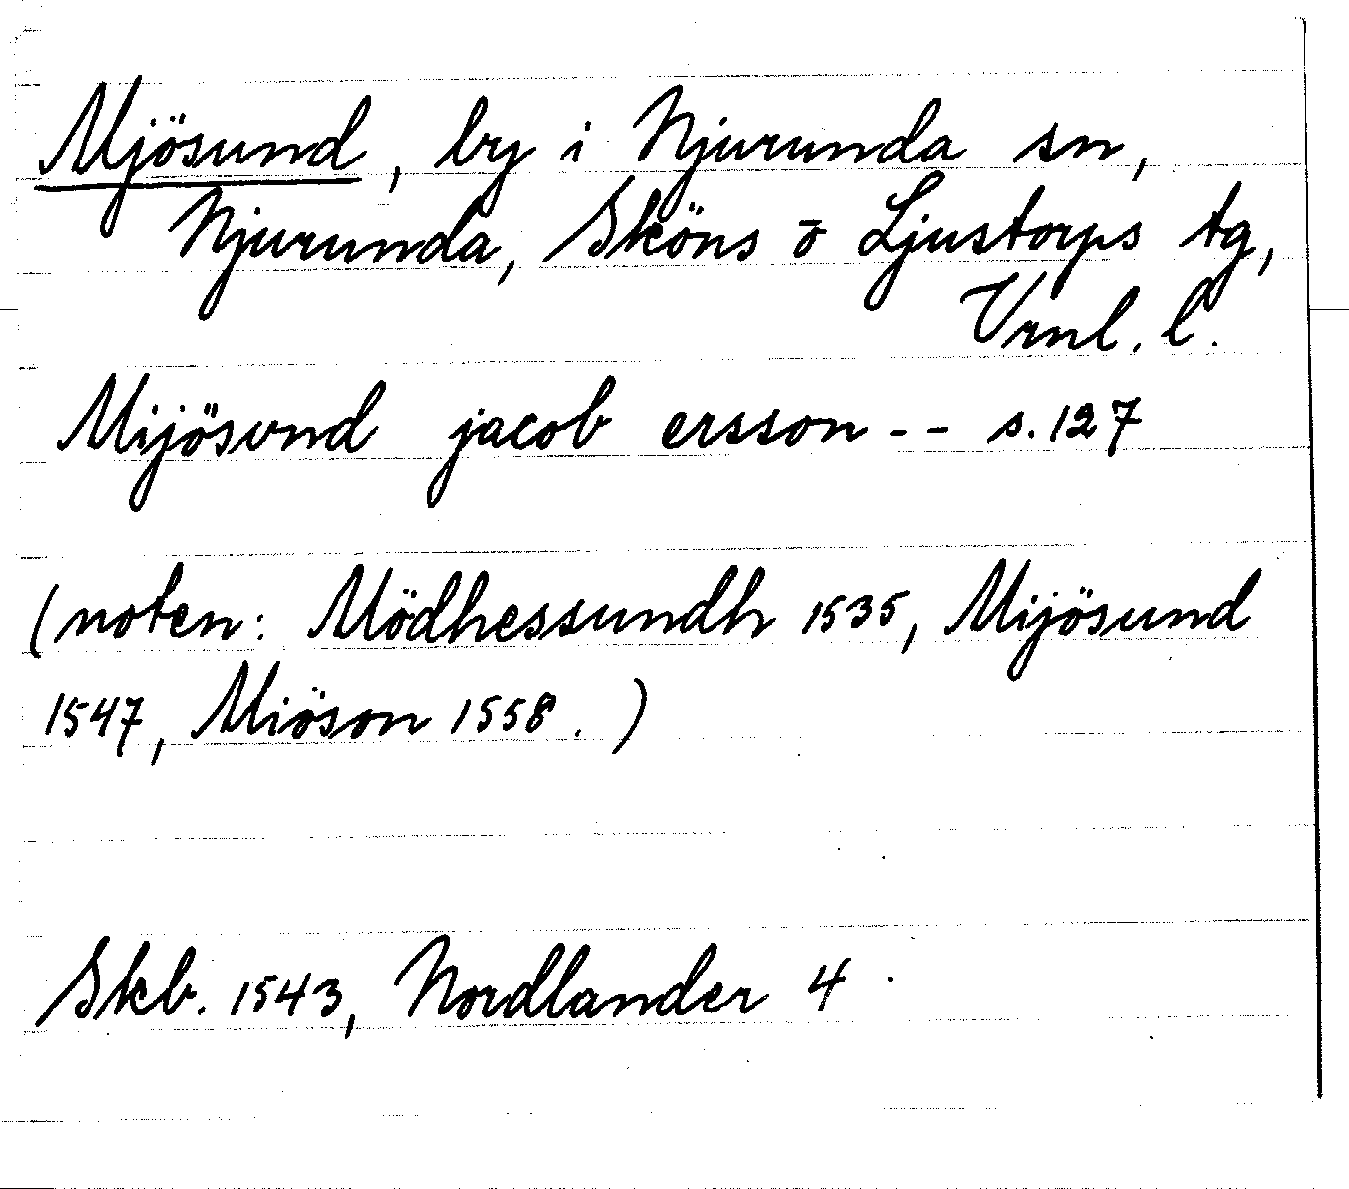 Mjösund, by i Njurunda sn,
Njurunda, Sköns o Ljustorps tg,
Vrnl. l.
Mijösvnd jacob ersson -- s. 127
(noten: Mödhessundh 1535, Mijösund
1547, Miöson 1558.)
Skb. 1543, Nordlander 4